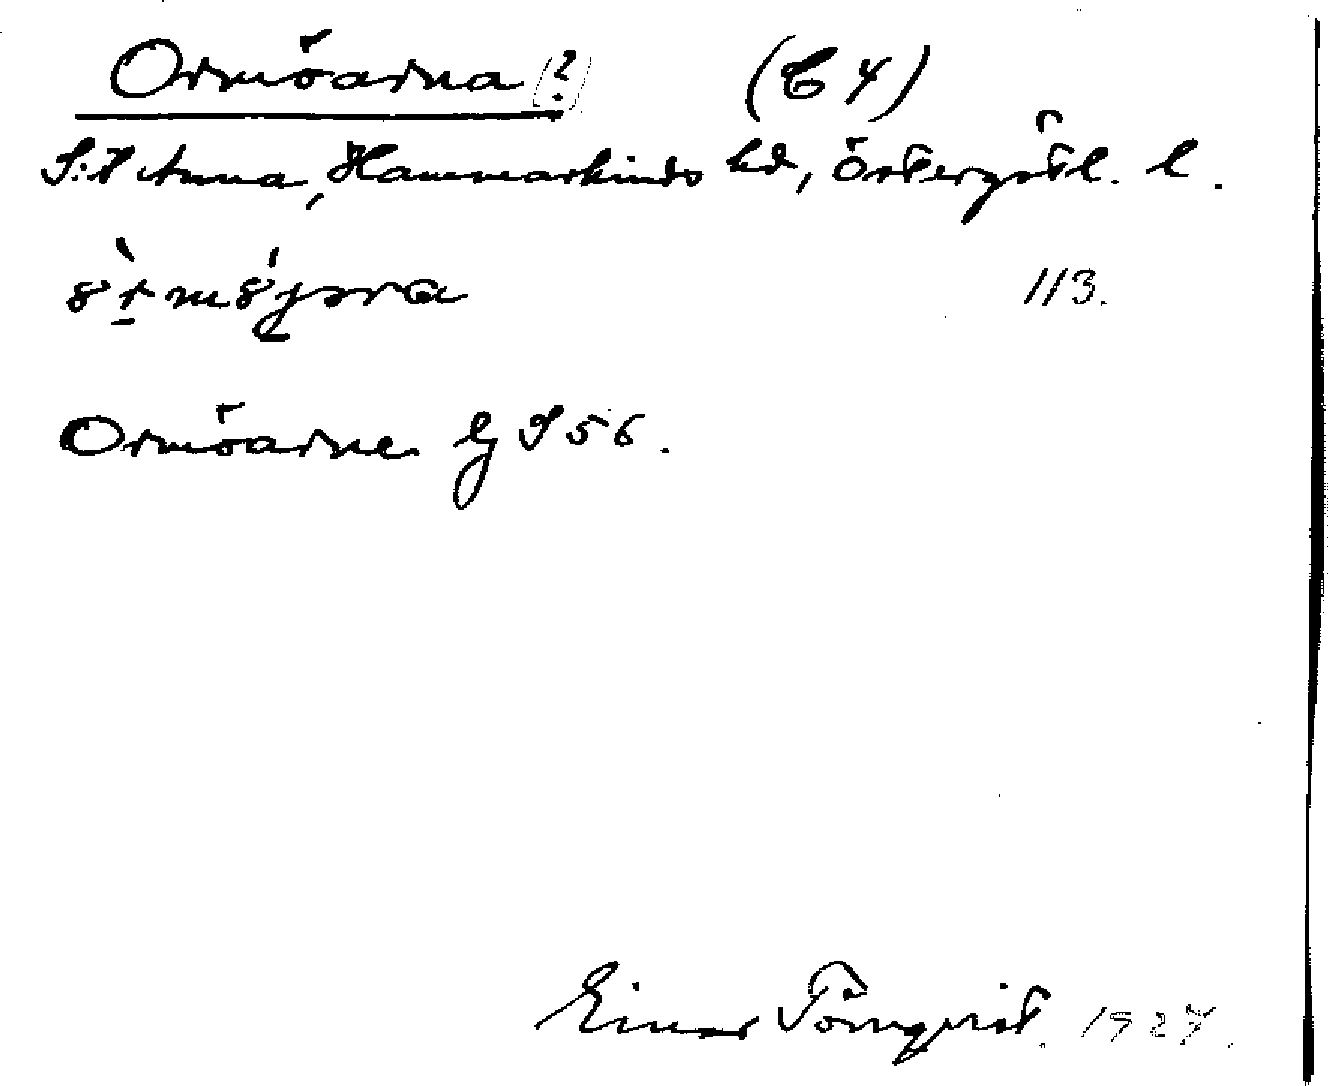 Ormöarna (?) (C4)
S:t Anna, Hammarkinds hd, Östergötl. l.
113.
Ormöarne GS 56.
Einar Törnqvist. 1927.